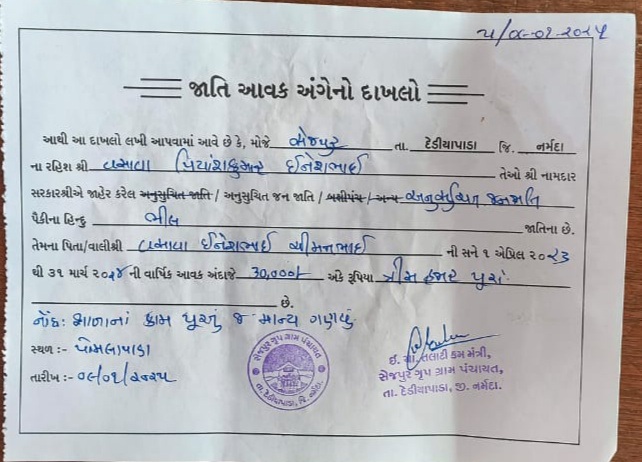 જાતિ આવક અંગેનો દાખલો
આથી આ દાખલો લખી આપવામાં આવે છે કે, મોજે સેજપુર તા. દેડીયાપાડા જિ. નર્મદા
ના રહિશ શ્રી વસાવા પ્રિયાંશકુમાર દિનેશભાઈ તેઓ શ્રી નામદાર
સરકારશ્રીએ જાહેર કરેલ અનુસુચિત જાતિ / અનુસુચિત જન જાતિ / બક્ષીપંચ / અન્ય અનુસુચિત જનજાતિ
પૈકીના હિન્દુ ભીલ જાતિના છે.
તેમના પિતા/વાલીશ્રી વસાવા દિનેશભાઈ ચીમનભાઈ ની સને ૧ એપ્રિલ ૨૦૨૩
થી ૩૧ માર્ચ ૨૦૨૪ ની વાર્ષિક આવક અંદાજે 30,000/- અંકે રૂપિયા ત્રીસ હજાર પુરા
છે.
નોંધ: શાળાનાં કામ પુરતું જ માન્ય ગણવું
સ્થળ :- પોમલાપાડા
તારીખ :- ૦૯/૦૧/૨૦૨૫
ઈ. ચા. તલાટી કમ મંત્રી,
સેજપુર ગૃપ ગ્રામ પંચાયત,
તા. દેડીયાપાડા, જી. નર્મદા.
સેજપુર ગૃપ ગ્રામ પંચાયત
તા. દેડીયાપાડા, જિ. નર્મદા